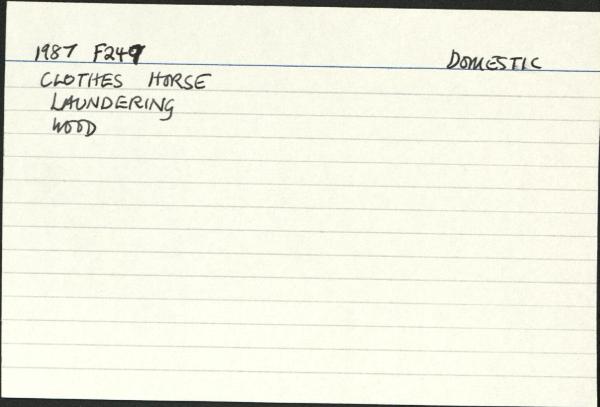 1987 F249 DOMESTIC
CLOTHES HORSE
LAUNDERING
WOOD